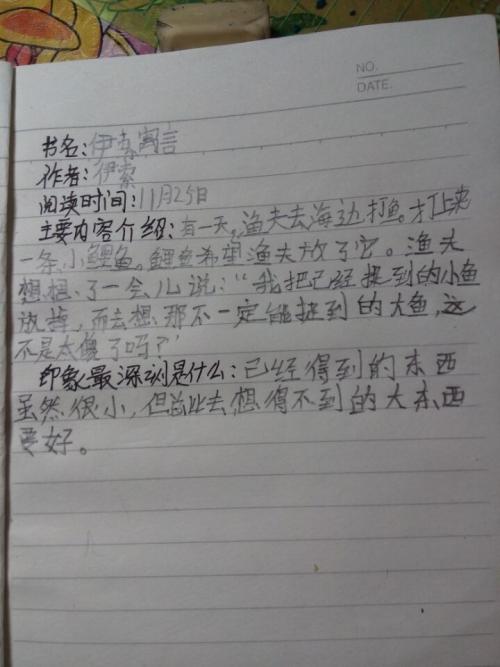 NO.
DATE.
书名：伊索寓言
作者：伊索
阅读时间：11月25日
主要内容介绍：有一天，渔夫去海边打鱼。才打上来
一条小鲤鱼。鲤鱼希望渔夫放了它。渔夫
想想了一会儿说：“我把已经捉到的小鱼
放掉，而去想那不一定能捉到的大鱼，这
不是太傻了吗？”
印象最深刻是什么：已经得到的东西
虽然很小，但总比去想得不到的大东西
要好。